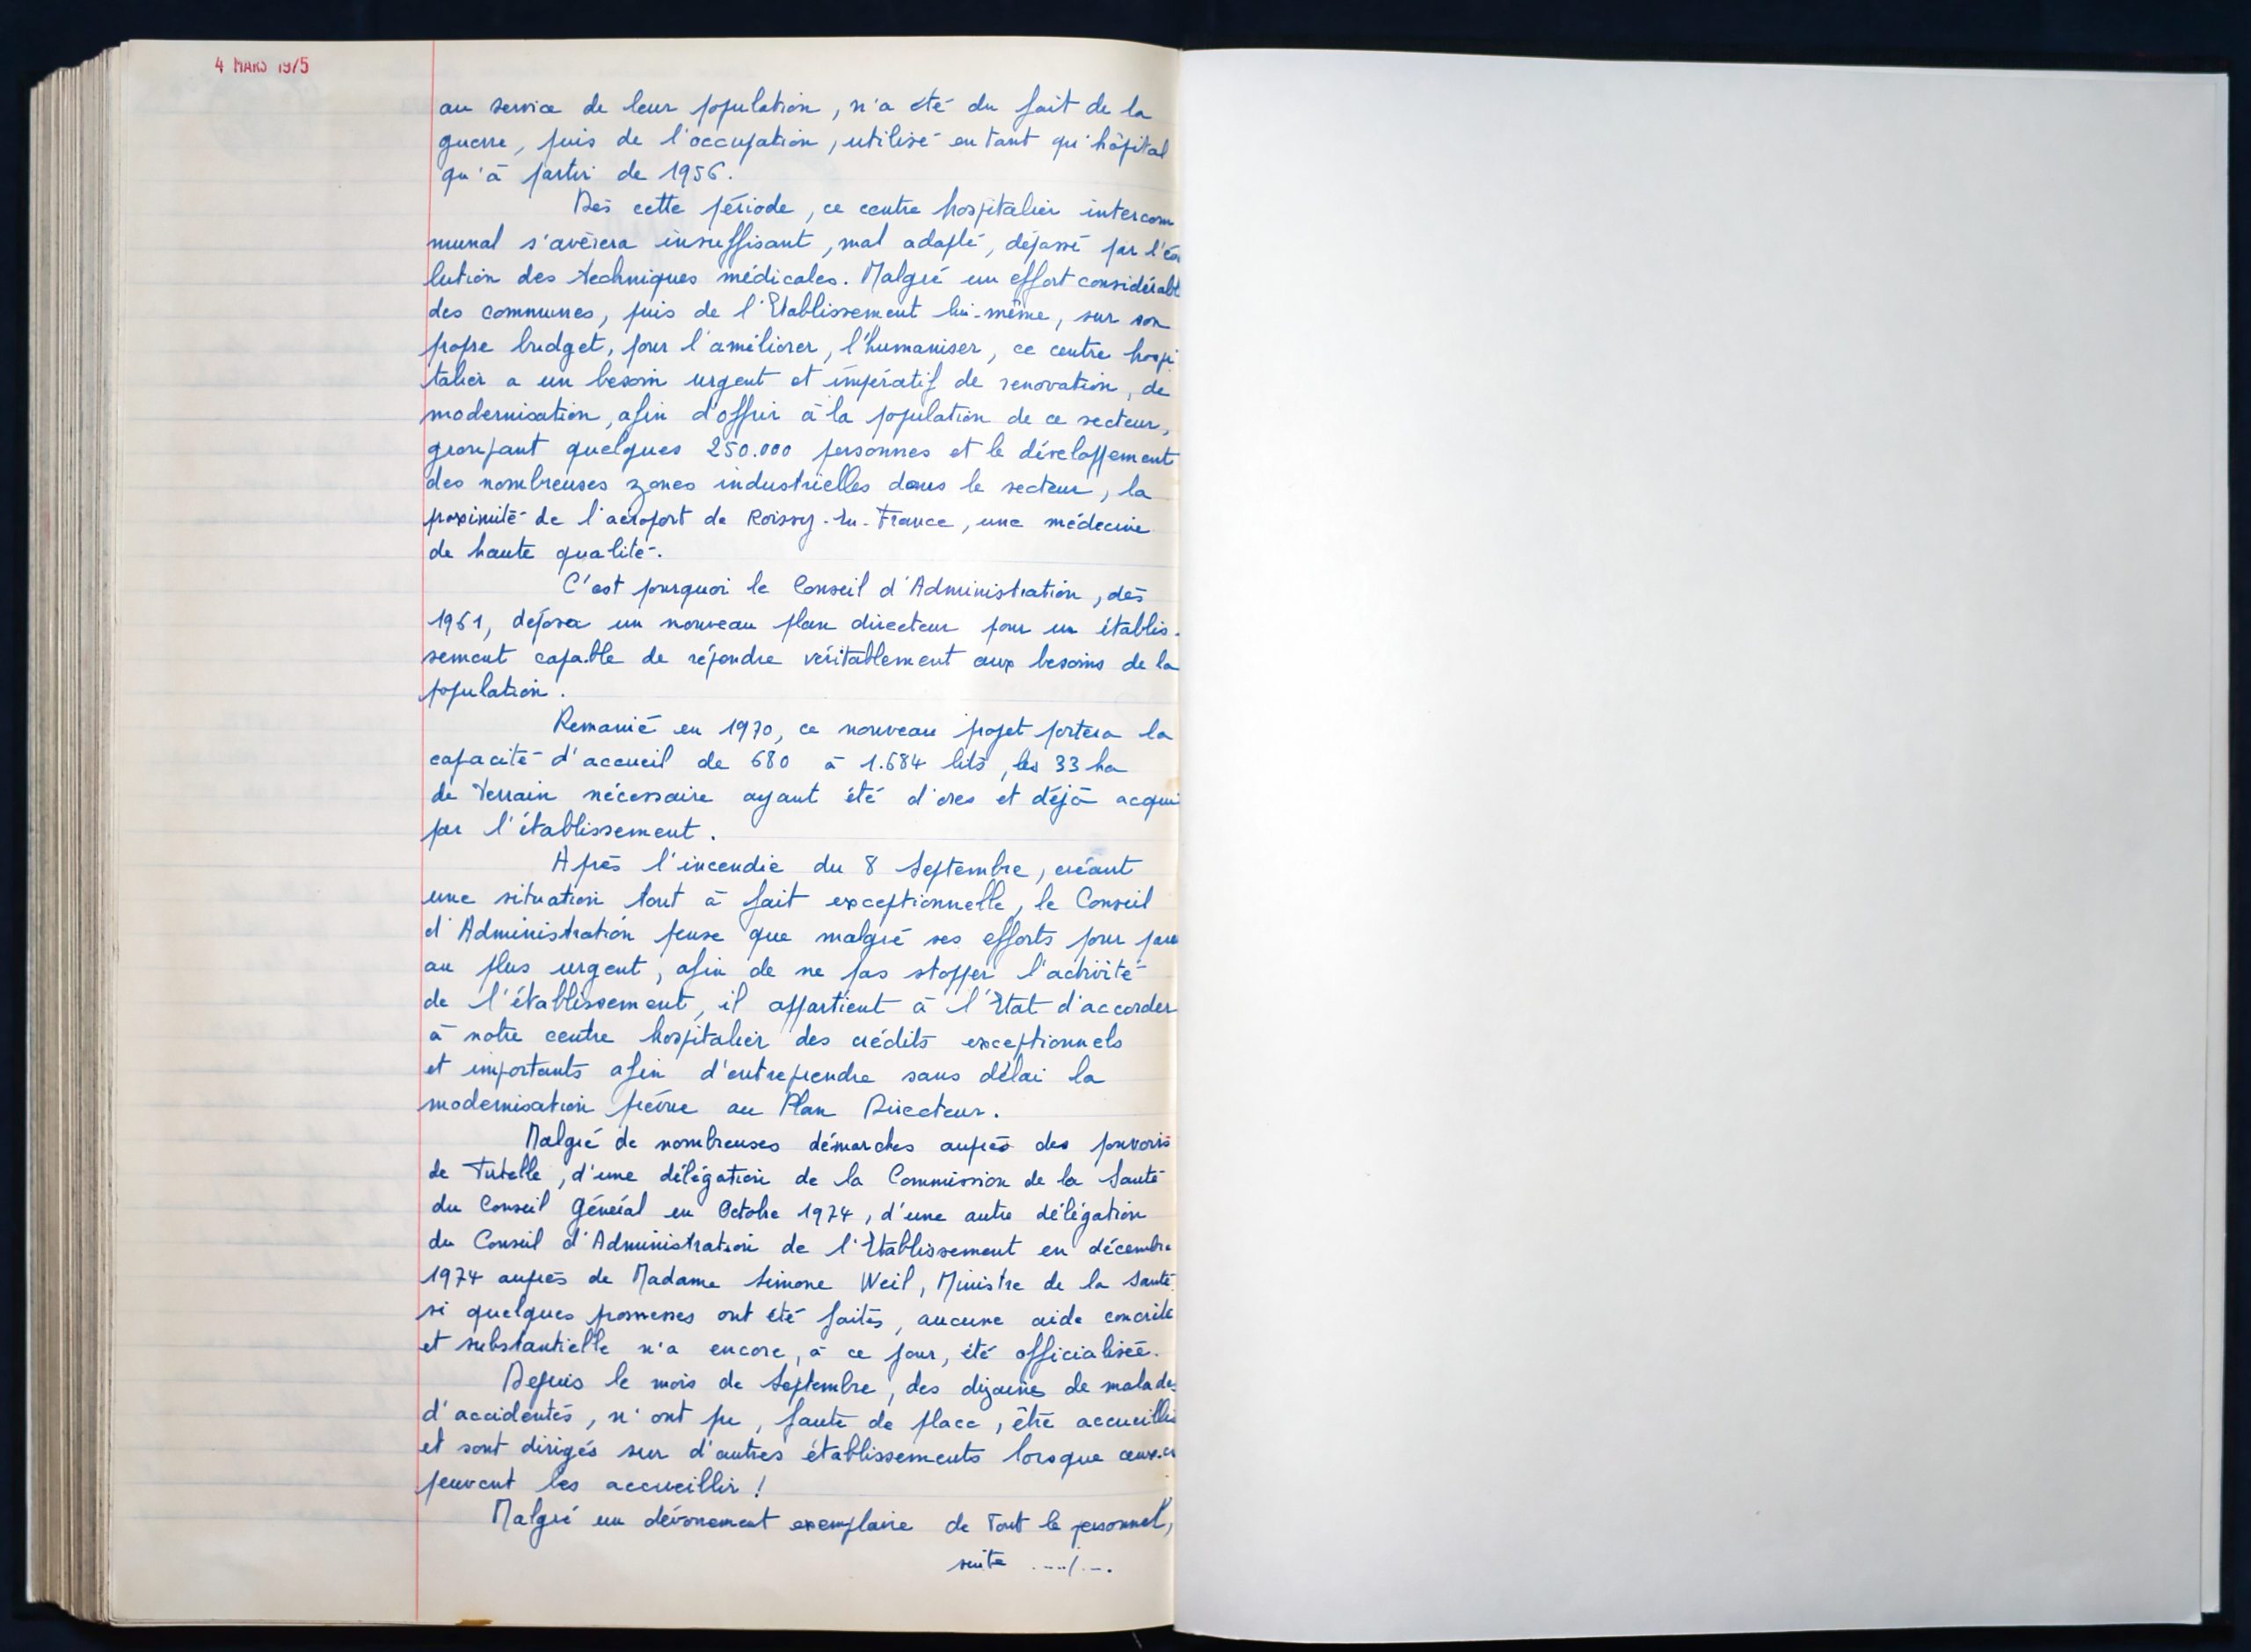 4 MARS 1975
au service de leur population, n'a été du fait de la
guerre, puis de l'occupation, utilisé en tant qu'hôpital
qu'à partir de 1956.
Dès cette période, ce centre hospitalier intercom
munal s'avèrera insuffisant, mal adapté, dépassé par l'évo
lution des techniques médicales. Malgré un effort considérable
des communes, puis de l'Etablissement lui-même, sur son
propre budget, pour l'améliorer, l'humaniser, ce centre hospi
talier a un besoin urgent et impératif de renovation, de
modernisation, afin d'offrir à la population de ce secteur,
groupant quelques 250.000 personnes et le développement
des nombreuses zones industrielles dans le secteur, la
proximité de l'aéroport de Roissy-En-France, une médecine
de haute qualité.
C'est pourquoi le Conseil d'Administration, dès
1961, déposa un nouveau plan directeur pour un établis-
sement capable de répondre véritablement aux besoins de la
population.
Remanié en 1970, ce nouveau projet portera la
capacité d'accueil de 680 à 1.684 lits, les 33 ha
de terrain nécessaire ayant été d'ores et déjà acquis
par l'établissement.
Après l'incendie du 8 Septembre, créant
une situation tout à fait exceptionnelle, le Conseil
d'Administration pense que malgré ses efforts pour parer
au plus urgent, afin de ne pas stopper l'activité
de l'établissement, il appartient à l'Etat d'accorder
à notre centre hospitalier des crédits exceptionnels
et importants afin d'entreprendre sans délai la
modernisation prévue au Plan Directeur.
Malgré de nombreuses démarches auprès des pouvoirs
de Tutelle, d'une délégation de la Commission de la Santé
du Conseil Général en Octobre 1974, d'une autre délégation
du Conseil d'Administration de l'Etablissement en décembre
1974 auprès de Madame Simone Weil, Ministre de la Santé
si quelques promesses ont été faites, aucune aide concrète
et substantielle n'a encore, à ce jour, été officialisée.
Depuis le mois de Septembre, des dizaines de malades
d'accidentés, n'ont pu, faute de place, être accueillis
et sont dirigés sur d'autres établissements lorsque ceux-ci
peuvent les accueillir !
Malgré un dévouement exemplaire de tout le personnel,
suite ..../.-.